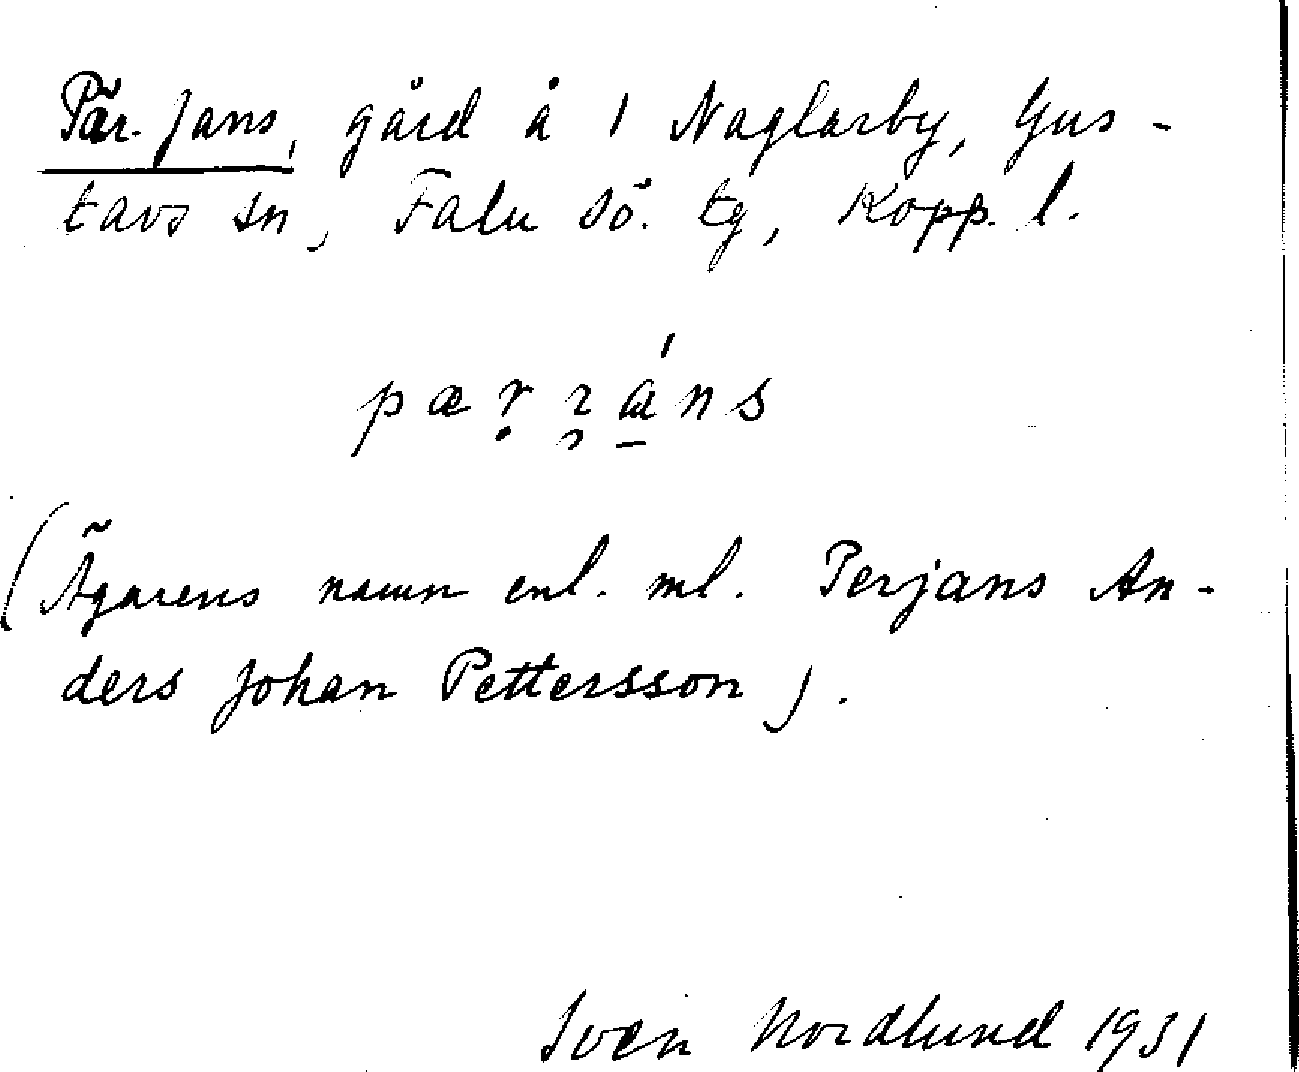 Pär-Jans, gård å 1 Naglarby, Gus-
tavs sn, Falu sö. tg, Kopp. l.
(Ägarens namn enl. ml. Perjans An-
ders Johan Pettersson).
Sven Nordlund 1931